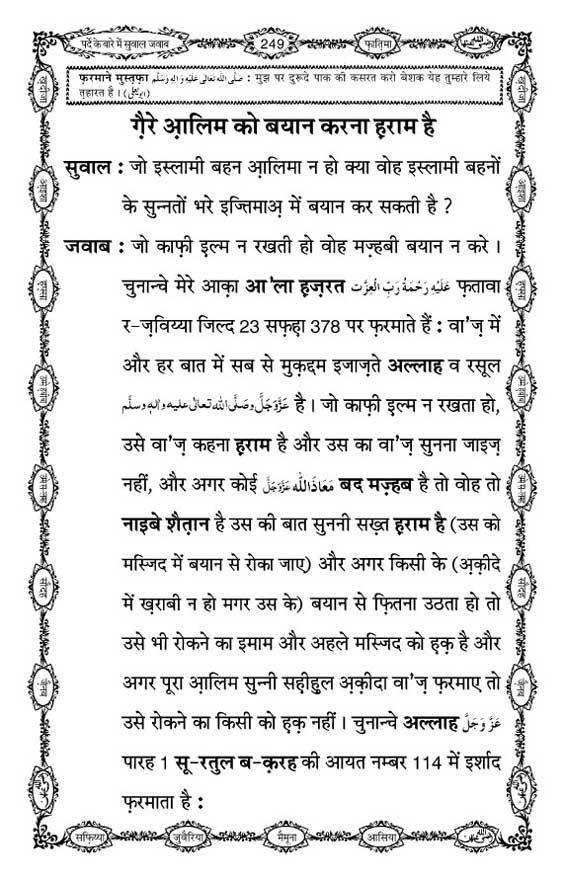 पर्दे के बारे में सुवाल जवाब
249
फ़ातिमा
फ़रमाने मुस्तफ़ा صَلَّى اللہ تعالٰی علیہ واٰلہٖ وسلَّم : मुझ पर दुरूदे पाक की कसरत करो बेशक येह तुम्हारे लिये
त़हारत है । (ابو یعلی)
ग़ैरे आ़लिम को बयान करना ह़राम है
सुवाल : जो इस्लामी बहन आ़लिमा न हो क्या वोह इस्लामी बहनों
के सुन्नतों भरे इज्तिमाअ़ में बयान कर सकती है ?
जवाब : जो काफ़ी इ़ल्म न रखती हो वोह मज़्हबी बयान न करे ।
चुनान्चे मेरे आक़ा आ'ला ह़ज़रत عَلَيْهِ رَحْمَةُ رَبِّ الْعِزَّت फ़तावा
र-ज़विय्या जिल्द 23 सफ़ह़ा 378 पर फ़रमाते हैं : वा'ज़ में
और हर बात में सब से मुक़द्दम इजाज़ते अल्लाह व रसूल
عَزَّوَجَلَّ وصَلَّى اللہ تعالٰی علیہ والہٖ وسلَّم है । जो काफ़ी इ़ल्म न रखता हो,
उसे वा'ज़ कहना ह़राम है और उस का वा'ज़ सुनना जाइज़
नहीं, और अगर कोई مَعَاذَاللّٰه عَزَّوَجَلَّ बद मज़्हब है तो वोह तो
नाइबे शैत़ान है उस की बात सुननी सख़्त ह़राम है (उस को
मस्जिद में बयान से रोका जाए) और अगर किसी के (अ़क़ीदे
में ख़राबी न हो मगर उस के) बयान से फ़ितना उठता हो तो
उसे भी रोकने का इमाम और अहले मस्जिद को ह़क़ है और
अगर पूरा आ़लिम सुन्नी सह़ीहुल अ़क़ीदा वा'ज़ फ़रमाए तो
उसे रोकने का किसी को ह़क़ नहीं । चुनान्चे अल्लाह عَزَّوَجَلَّ
पारह 1 सू-रतुल ब-क़रह की आयत नम्बर 114 में इर्शाद
फ़रमाता है :
सफ़िय्या
जुवैरिया
मैमूना
आसिया